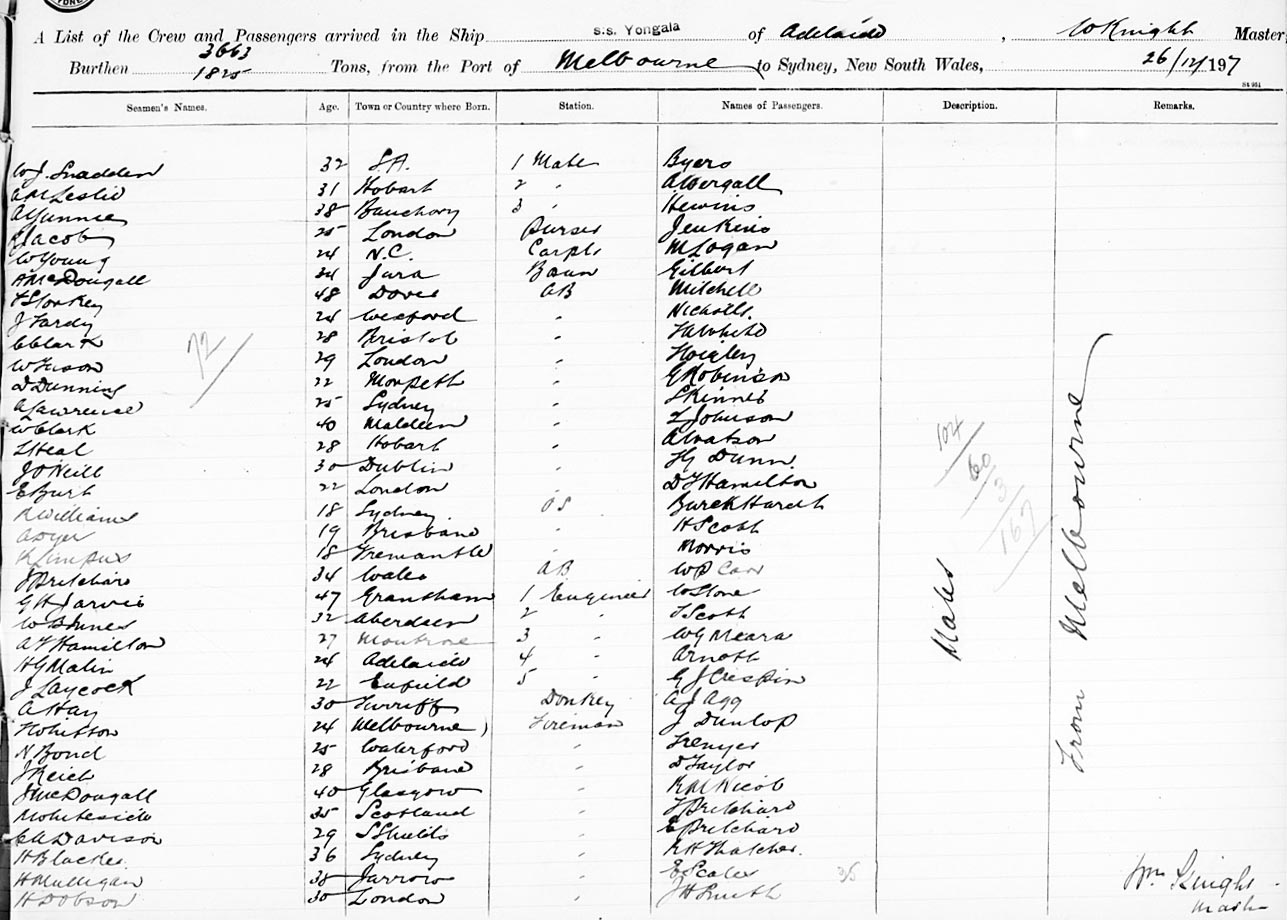 A List of the Crew and Passengers arrived in the Ship s.s. Yongala of Adelaide, W Knight Master,
Burthen 3663 1825 Tons, from the Port of Melbourne to Sydney, New South Wales, 26/12/197
S4 951
Seamen's Names. Age. Town or Country where Born. Station. Names of Passengers. Description. Remarks.
W J. Snadden 32 S.A. 1 Mate Byers
Leslie 31 Hobart 2 "
38 Banchory 3 " Hewins
Jacob 25 London Purser Jenkins
W Young 24 N.C. Carptr McLogan
McDougall 34 Jura Gilbert
48 AB Mitchell
J Fardy 24 Wexford " Nicholls
C Clark 28 Bristol " White
29 London "
72
D Dunning 22 Morpeth " Robinson
A Lawrence 25 Sydney " Skinner
W Clark 40 " Johnson
Heal 28 Hobart " A Watson
J O'Neill 30 Dublin " Dunn
E Burt 22 London " Hamilton
R Williams 18 Sydney OS Burckhardt
A Dyer 19 Brisbane " H Scott
18 Fremantle " Morris
J Pritchard 34 Wales AB W P Carr
G H Jarvis 47 Grantham 1 Engineer W Stone
W B Innes 32 Aberdeen 2 " Scott
Hamilton 27 Montrose 3 " Meara
H G Malin 24 Adelaide 4 " Arnott
J Laycock 22 Enfield 5 " G J Crespin
A Hay 30 Turriff Donkey A J Agg
24 Melbourne Fireman J Dunlop
N Bond 25 Waterford "
J Reich 28 Brisbane " D Taylor
J McDougall 40 Glasgow "
Whiteside 35 Scotland " Pritchard
Davison 29 S Shields " E Pritchard
H Blackee 36 Sydney " R H Thatcher
H Mulligan 38 Jarrow " E Scales 35
H Dobson 30 London " J H Smith
104
60
3
167
Males
From Melbourne
Wm Knight
Master